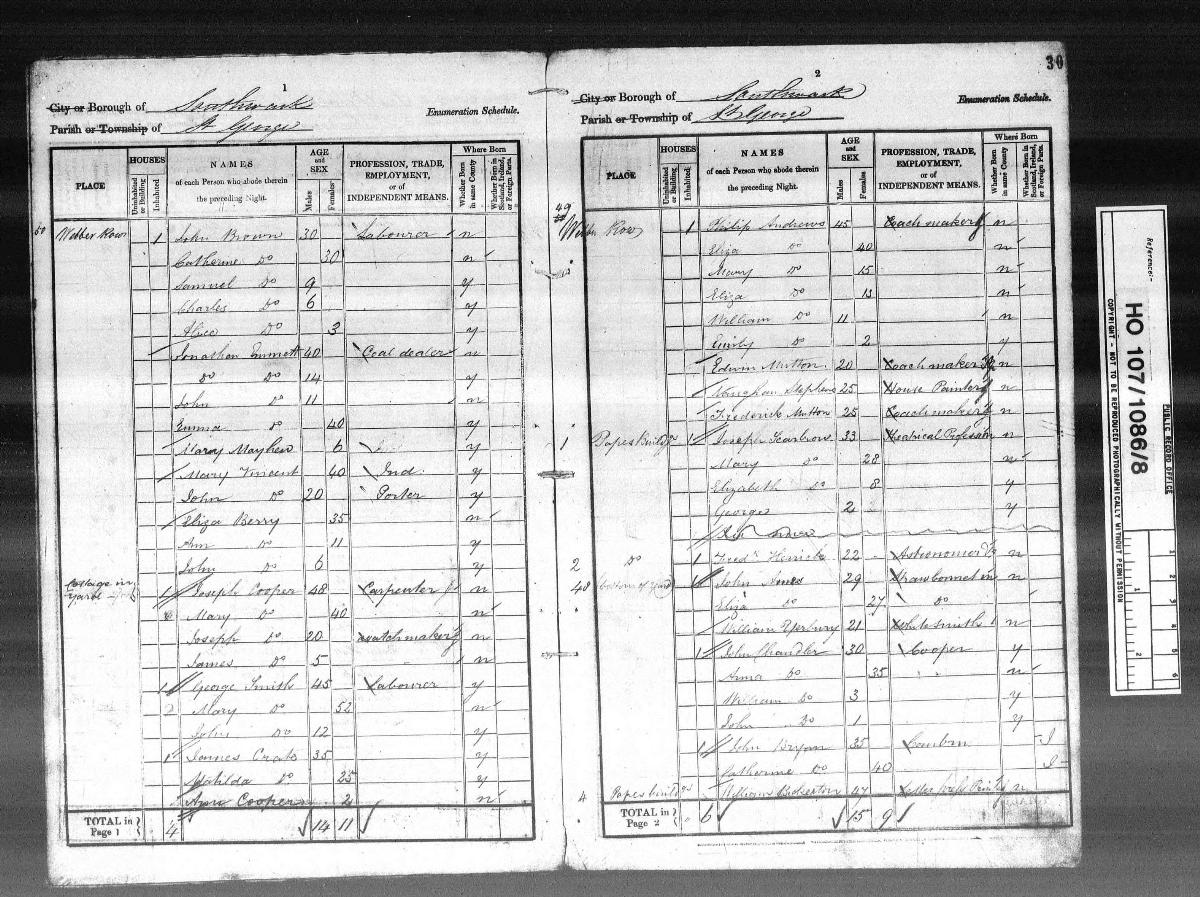 1
City or Borough of Southwark
Enumeration Schedule.
Parish or Township of St George
PLACE
HOUSES
Uninhabited or Building
Inhabited
NAMES
of each Person who abode therein
the preceding Night.
AGE and SEX
Males
Females
PROFESSION, TRADE,
EMPLOYMENT,
or of
INDEPENDENT MEANS.
Where Born
Whether Born in same County
Whether Born in Scotland, Ireland, or Foreign Parts.
50 Webber Row 1 John Brown 30 Labourer n
Catherine Do 30 n
Samuel Do 9 y
Charles Do 6 y
Alice Do 3 y
Jonathan Emmett 40 Coal dealer n
Do Do 14 y
John Do 11 n
Emma Do 40 y
Mary Mayhew 6 y
Mary Vincent 40 Ind. y
John Do 20 Porter y
Eliza Berry 35 n
Ann Do 11 y
John Do 6 y
Cottage in yard 1 Joseph Cooper 48 Carpenter J n
Mary Do 40 n
Joseph Do 20 Watchmaker J n
James Do 5 n
1 George Smith 45 Labourer y
Mary Do 52 n
John Do 12 y
1 James 35 y
Matilda Do 25 y
Ann Cooper 2 n
TOTAL in Page 1 4 14 11
2
30
City or Borough of Southwark
Enumeration Schedule.
Parish or Township of St George
PLACE
HOUSES
Uninhabited or Building
Inhabited
NAMES
of each Person who abode therein
the preceding Night.
AGE and SEX
Males
Females
PROFESSION, TRADE,
EMPLOYMENT,
or of
INDEPENDENT MEANS.
Where Born
Whether Born in same County
Whether Born in Scotland, Ireland, or Foreign Parts.
49 Webber Row 1 Philip Andrews 45 Coachmaker J n
Eliza Do 40 n
Mary Do 15 n
Eliza Do 13 n
William Do 11 n
Emily Do 2 y
Edwin Mutton 20 Coachmaker n
Stephens 25 House Painter J n
Frederick Mutton 25 Coachmaker J n
1 Popes Buildgs 1 Joseph Scarbrow 33 Theatrical Profession n
Mary Do 28 n
Elizabeth Do 8 y
George 2 y
2 Do 1 Fredk Herrick 22 n
48 bottom of yard 1 John Jones 29 Strawbonnet n
Eliza Do 27 Do n
William Yerbury 21 Whitesmith n
1 John Chandler 30 Cooper y
Anna Do 35 n
William Do 3 y
John Do 1 y
1 John Bryan 35 I
Catherine Do 40 I
4 Popes buildgs William Bickerton 47 Letter press Printer n
TOTAL in Page 2 6 15 9
Reference:-
HO 107/1086/8
PUBLIC RECORD OFFICE
COPYRIGHT - NOT TO BE REPRODUCED PHOTOGRAPHICALLY WITHOUT PERMISSION
1 2 3 4 5 6
1 2